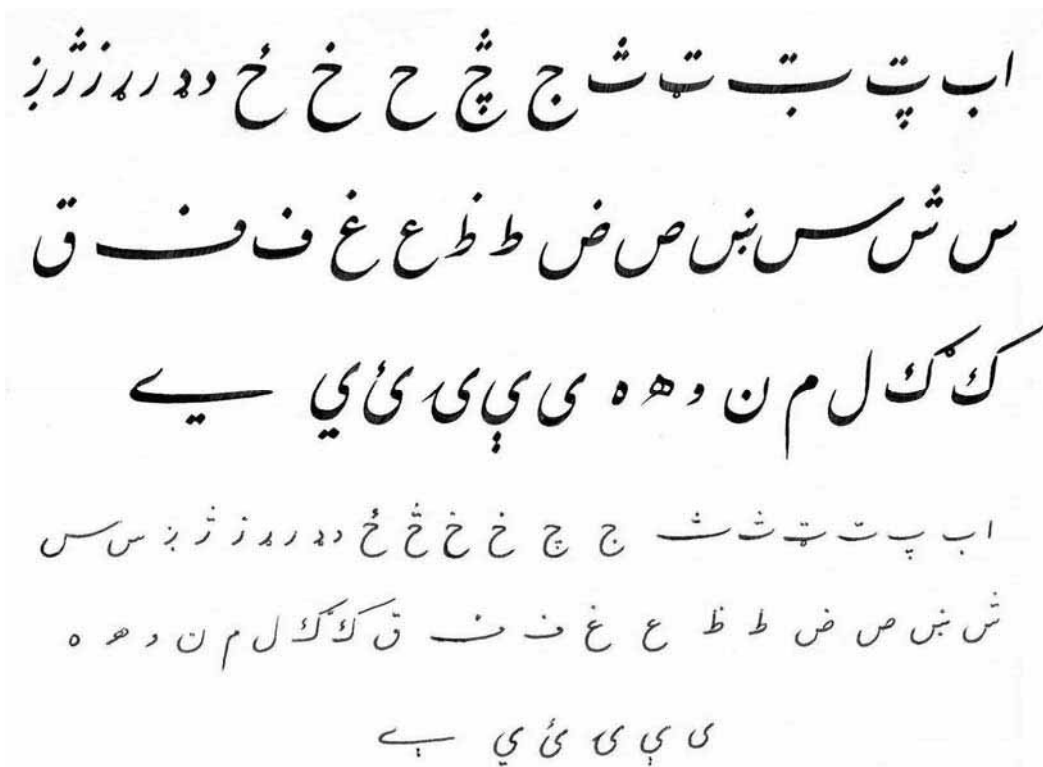 ا ب پ ت ټ ث ج چ څ ح خ ځ د ډ ر ړ ز ژ ږ
س ش س ښ ص ض ط ظ ع غ ف ف ق
ك گ ل م ن و ھ ه ى ې ۍ ئ ي ے
ا ب پ ت ټ ث ث ج چ خ خ څ ځ د ډ ر ړ ز ژ ږ س س
ش ښ ص ض ط ظ ع غ ف ف ق ك گ ل م ن و ھ ه
ى ې ۍ ئ ي ے